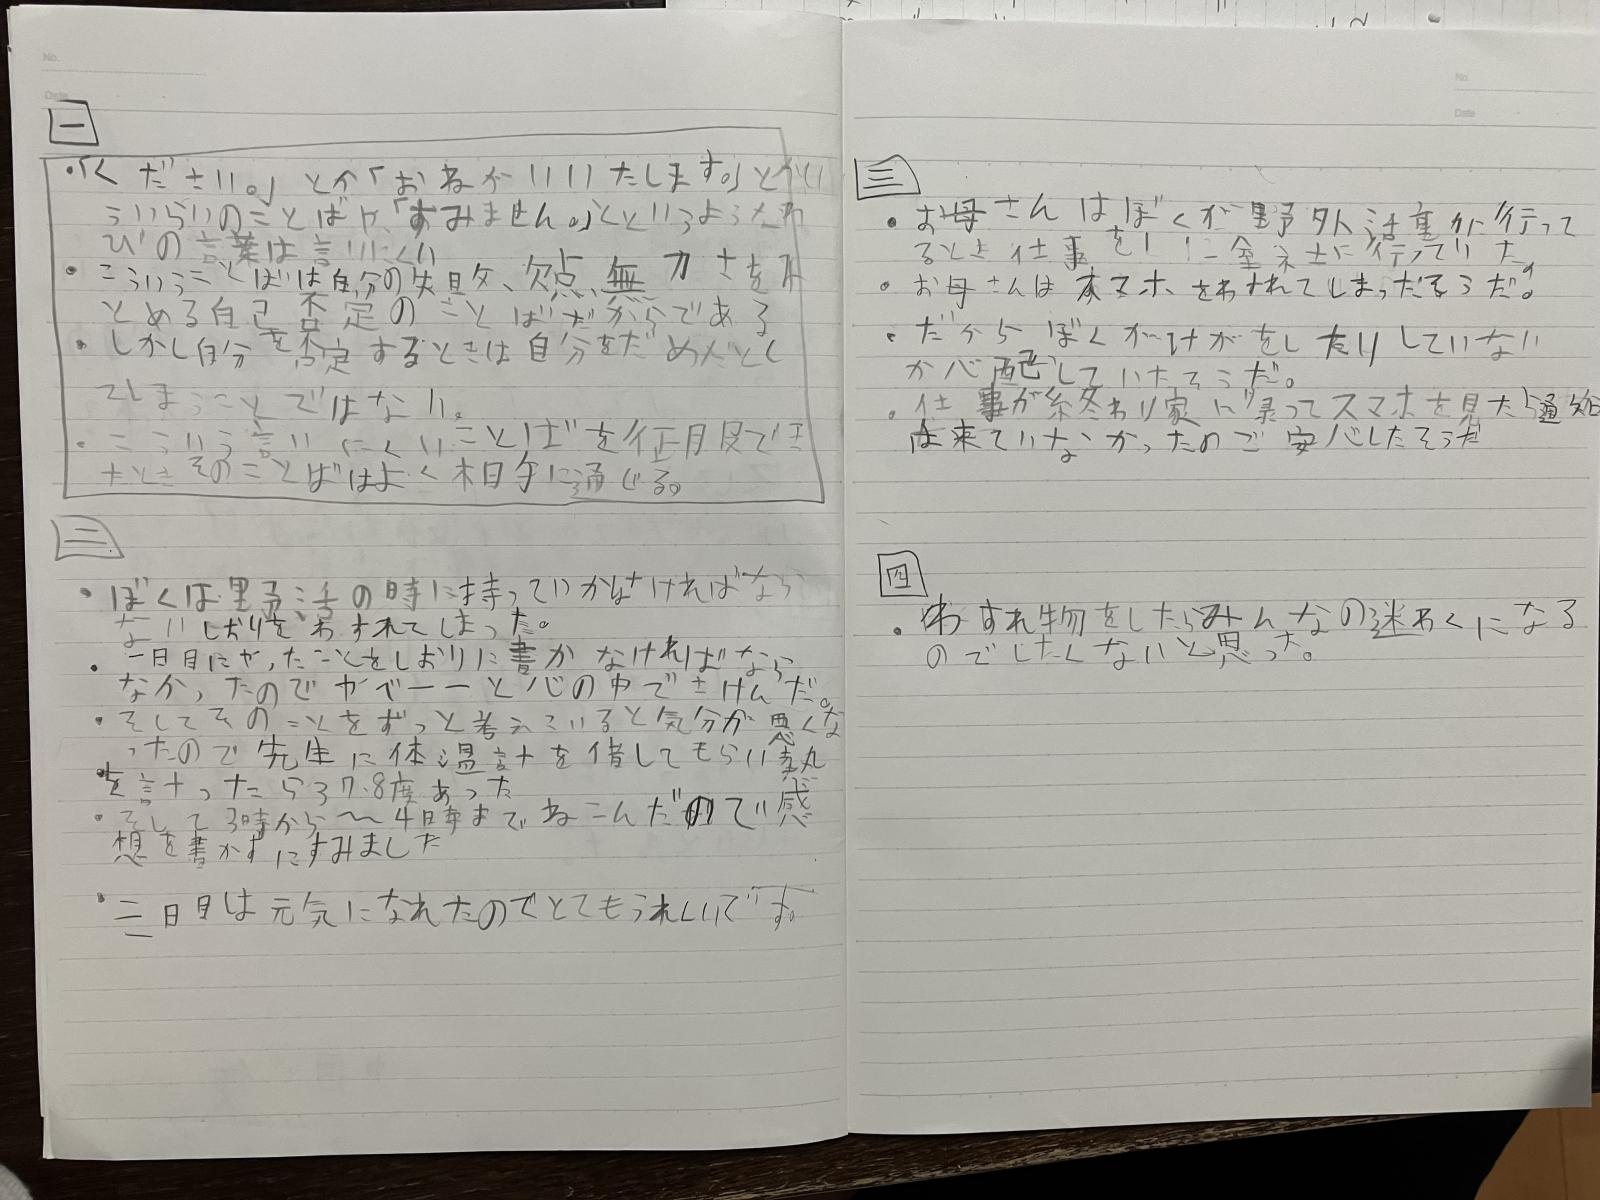 No.
Date
一
・「ください。」とか「おねがいいたします。」とかい
ういらいのことばや、「すみません。」というようなわ
びの言葉は言いにくい
・こういうことばは自分の失敗、欠点、無力さをみ
とめる自己否定のことばだからである
・しかし自分を否定するときは自分をだめだとし
てしまうことではない。
・こういう言いにくいことばを征服できた
たときそのことばはよく相手に通じる。
二
・ぼくは野活の時に持っていかなければなら
ないしおりをわすれてしまった。
・一日目にやったことをしおりに書かなければなら
なかったのでやべーーと心の中でさけんだ。
・そしてそのことをずっと考えていると気分が悪くな
ったので先生に体温計を借してもらい熱
を計ったら37.8度あった
・そして3時から〜4時までねこんだので感
想を書かずにすみました
・三日目は元気になれたのでとてもうれしいです。
No
Date
三
・お母さんはぼくが野外活動に行って
るとき仕事をしに会社に行っていた。
・お母さんはスマホをわすれてしまっだそうだ。
・だからぼくがけがをしたりしていない
か心配していたそうだ。
・仕事が終わり家に帰ってスマホを見たら通知
は来ていなかったのご安心したそうだ
四
・わすれ物をしたらみんなの迷わくになる
のでしたくないと思った。